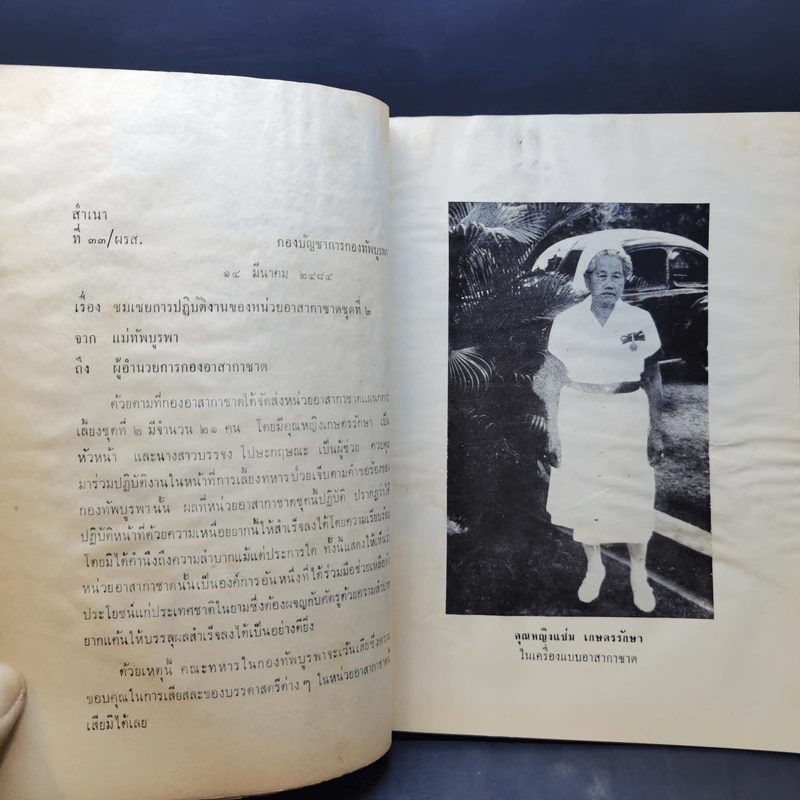 สำเนา
ที่ ๓๓/ผรส. กองบัญชาการกองทัพบูรพา
๑๔ มีนาคม ๒๔๘๔
เรื่อง ชมเชยการปฏิบัติงานของหน่วยอาสากาชาดชุดที่ ๒
จาก แม่ทัพบูรพา
ถึง ผู้อำนวยการกองอาสากาชาด
ด้วยตามที่กองอาสากาชาดได้จัดส่งหน่วยอาสากาชาดแผนกการ
เลี้ยงชุดที่ ๒ มีจำนวน ๒๑ คน โดยมีคุณหญิงเกษตรรักษา เป็น
หัวหน้า และนางสาวบรรจง โปษะกฤษณะ เป็นผู้ช่วย ควบคุม
มาร่วมปฏิบัติงานในหน้าที่การเลี้ยงทหารป่วยเจ็บตามคำขอร้องของ
กองทัพบูรพานั้น ผลที่หน่วยอาสากาชาดชุดนี้ปฏิบัติ ปรากฏว่าได้
ปฏิบัติหน้าที่ด้วยความเหนื่อยยากนี้ให้สำเร็จลงได้โดยความเรียบร้อย
โดยมิได้คำนึงถึงความลำบากแม้แต่ประการใด ทั้งนี้แสดงให้เห็นว่า
หน่วยอาสากาชาดนั้นเป็นองค์การอันหนึ่งที่ได้ร่วมมือช่วยเหลือทำ
ประโยชน์แก่ประเทศชาติในยามซึ่งต้องผจญกับศัตรูด้วยความลำบาก
ยากแค้นให้บรรลุผลสำเร็จลงได้เป็นอย่างดียิ่ง
ด้วยเหตุนี้ คณะทหารในกองทัพบูรพาจะเว้นเสียซึ่งความ
ขอบคุณในการเสียสละของบรรดาสตรีต่าง ๆ ในหน่วยอาสากาชาดนี้
เสียมิได้เลย
คุณหญิงแช่ม เกษตรรักษา
ในเครื่องแบบอาสากาชาด